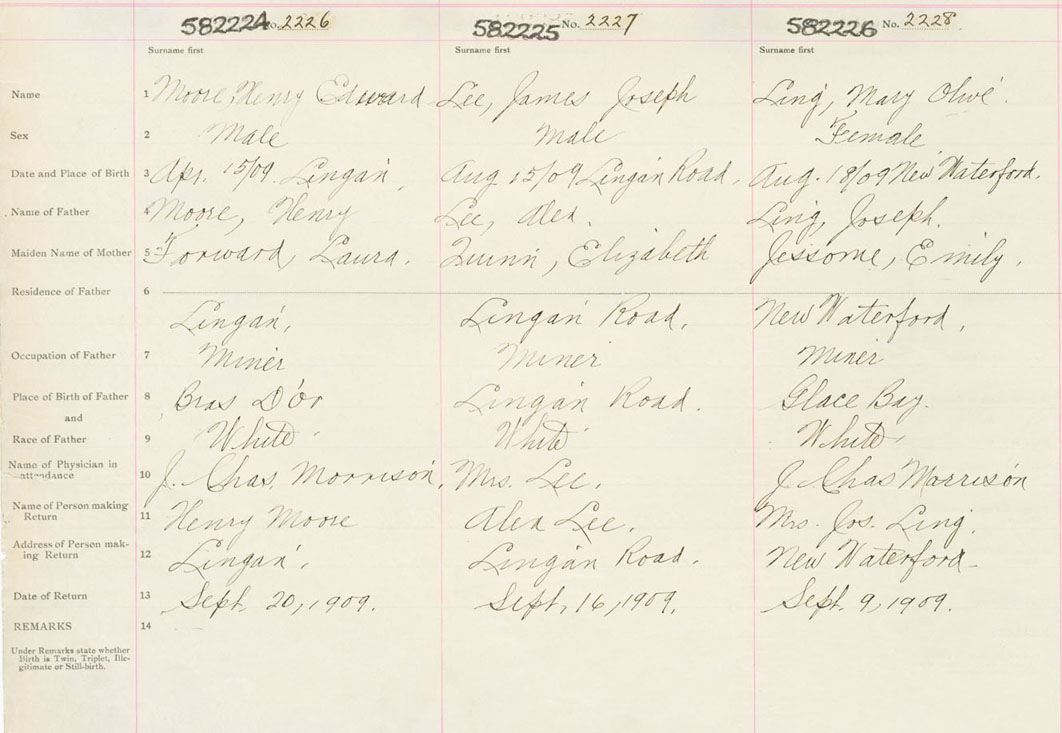 582224 No. 2226 582225 No. 2227 582226 No. 2228
Surname first Surname first Surname first
Name 1 Moore, Henry Edward Lee, James Joseph Ling, Mary Olive.
Sex 2 Male Male Female
Date and Place of Birth 3 Apr. 15/09 Lingan, Aug 15/09 Lingan Road. Aug. 18/09 New Waterford.
Name of Father 4 Moore, Henry Lee, Alex. Ling, Joseph.
Maiden Name of Mother 5 Forward, Laura. Quinn, Elizabeth Jessome, Emily.
Residence of Father 6
Lingan, Lingan Road. New Waterford,
Occupation of Father 7 Miner Miner Miner
Place of Birth of Father 8 Bras D'or Lingan Road. Glace Bay.
and
Race of Father 9 White White White
Name of Physician in
attendance 10 J. Chas. Morrison, Mrs. Lee. J Chas Morrison
Name of Person making
Return 11 Henry Moore Alex Lee. Mrs. Jos. Ling.
Address of Person mak-
ing Return 12 Lingan. Lingan Road. New Waterford
Date of Return 13 Sept. 20, 1909. Sept, 16, 1909. Sept. 9, 1909.
REMARKS 14
Under Remarks state whether
Birth is Twin, Triplet, Ille-
gitimate or Still-birth.